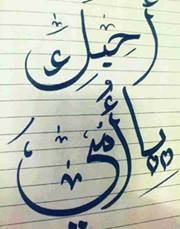 أحبكِ
يا أمي